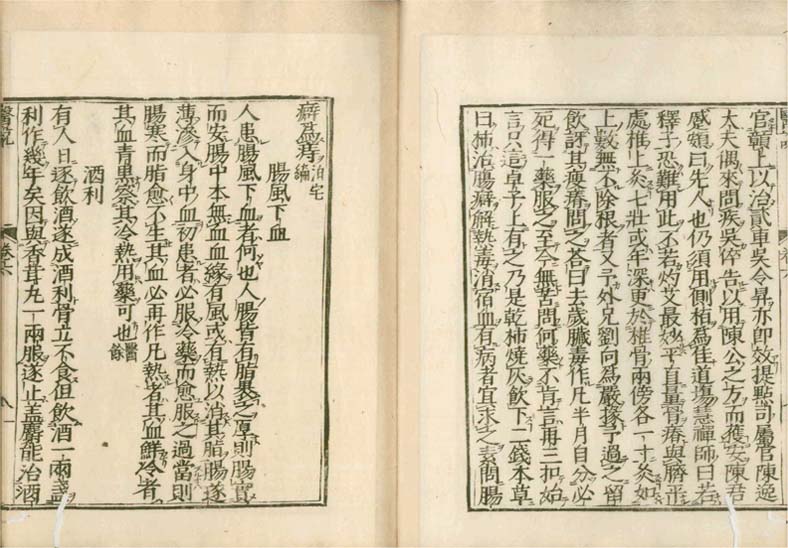 官贛上以治貳車吳令昇亦即效提點司屬官陳逸
大夫偶來問疾吳倅告以用陳公之方而獲安陳君
感頞曰先人也仍須用側栢為佳道場慧禪師曰若
釋子恐難用此不若灼艾最妙平直量骨瘠與臍平
處椎上灸七壯或年深更於椎骨兩傍各一寸灸如
上數無不除根者又予外兄劉向為嚴掾予過之留
飲訝其瘦瘠問之荅曰去歲臟毒作凡半月自分必
死得一藥服之至今無苦問何藥不肯言再三扣始
言只這卓子上有之乃是乾柿燒灰飲下二錢本草
曰柿治腸癖解熱毒消宿血有病者宜求之素問腸
癖為痔 泊宅編
腸風下血
人患腸風下血者何也人腸皆有脂裹之厚則腸實
而安腸中本無血血緣有風或有熱以消其脂腸遂
薄滲入身中血初患者必服冷藥而愈服之過當則
腸寒而脂愈不生其血必再作凡熱者其血鮮冷者
其血青黑察其冷熱用藥可也 醫餘
酒利
有人日逐飲酒遂成酒利骨立不食但飲酒一兩盞
利作幾年矣因與香茸丸一兩服遂止盖麝能治酒
醫說